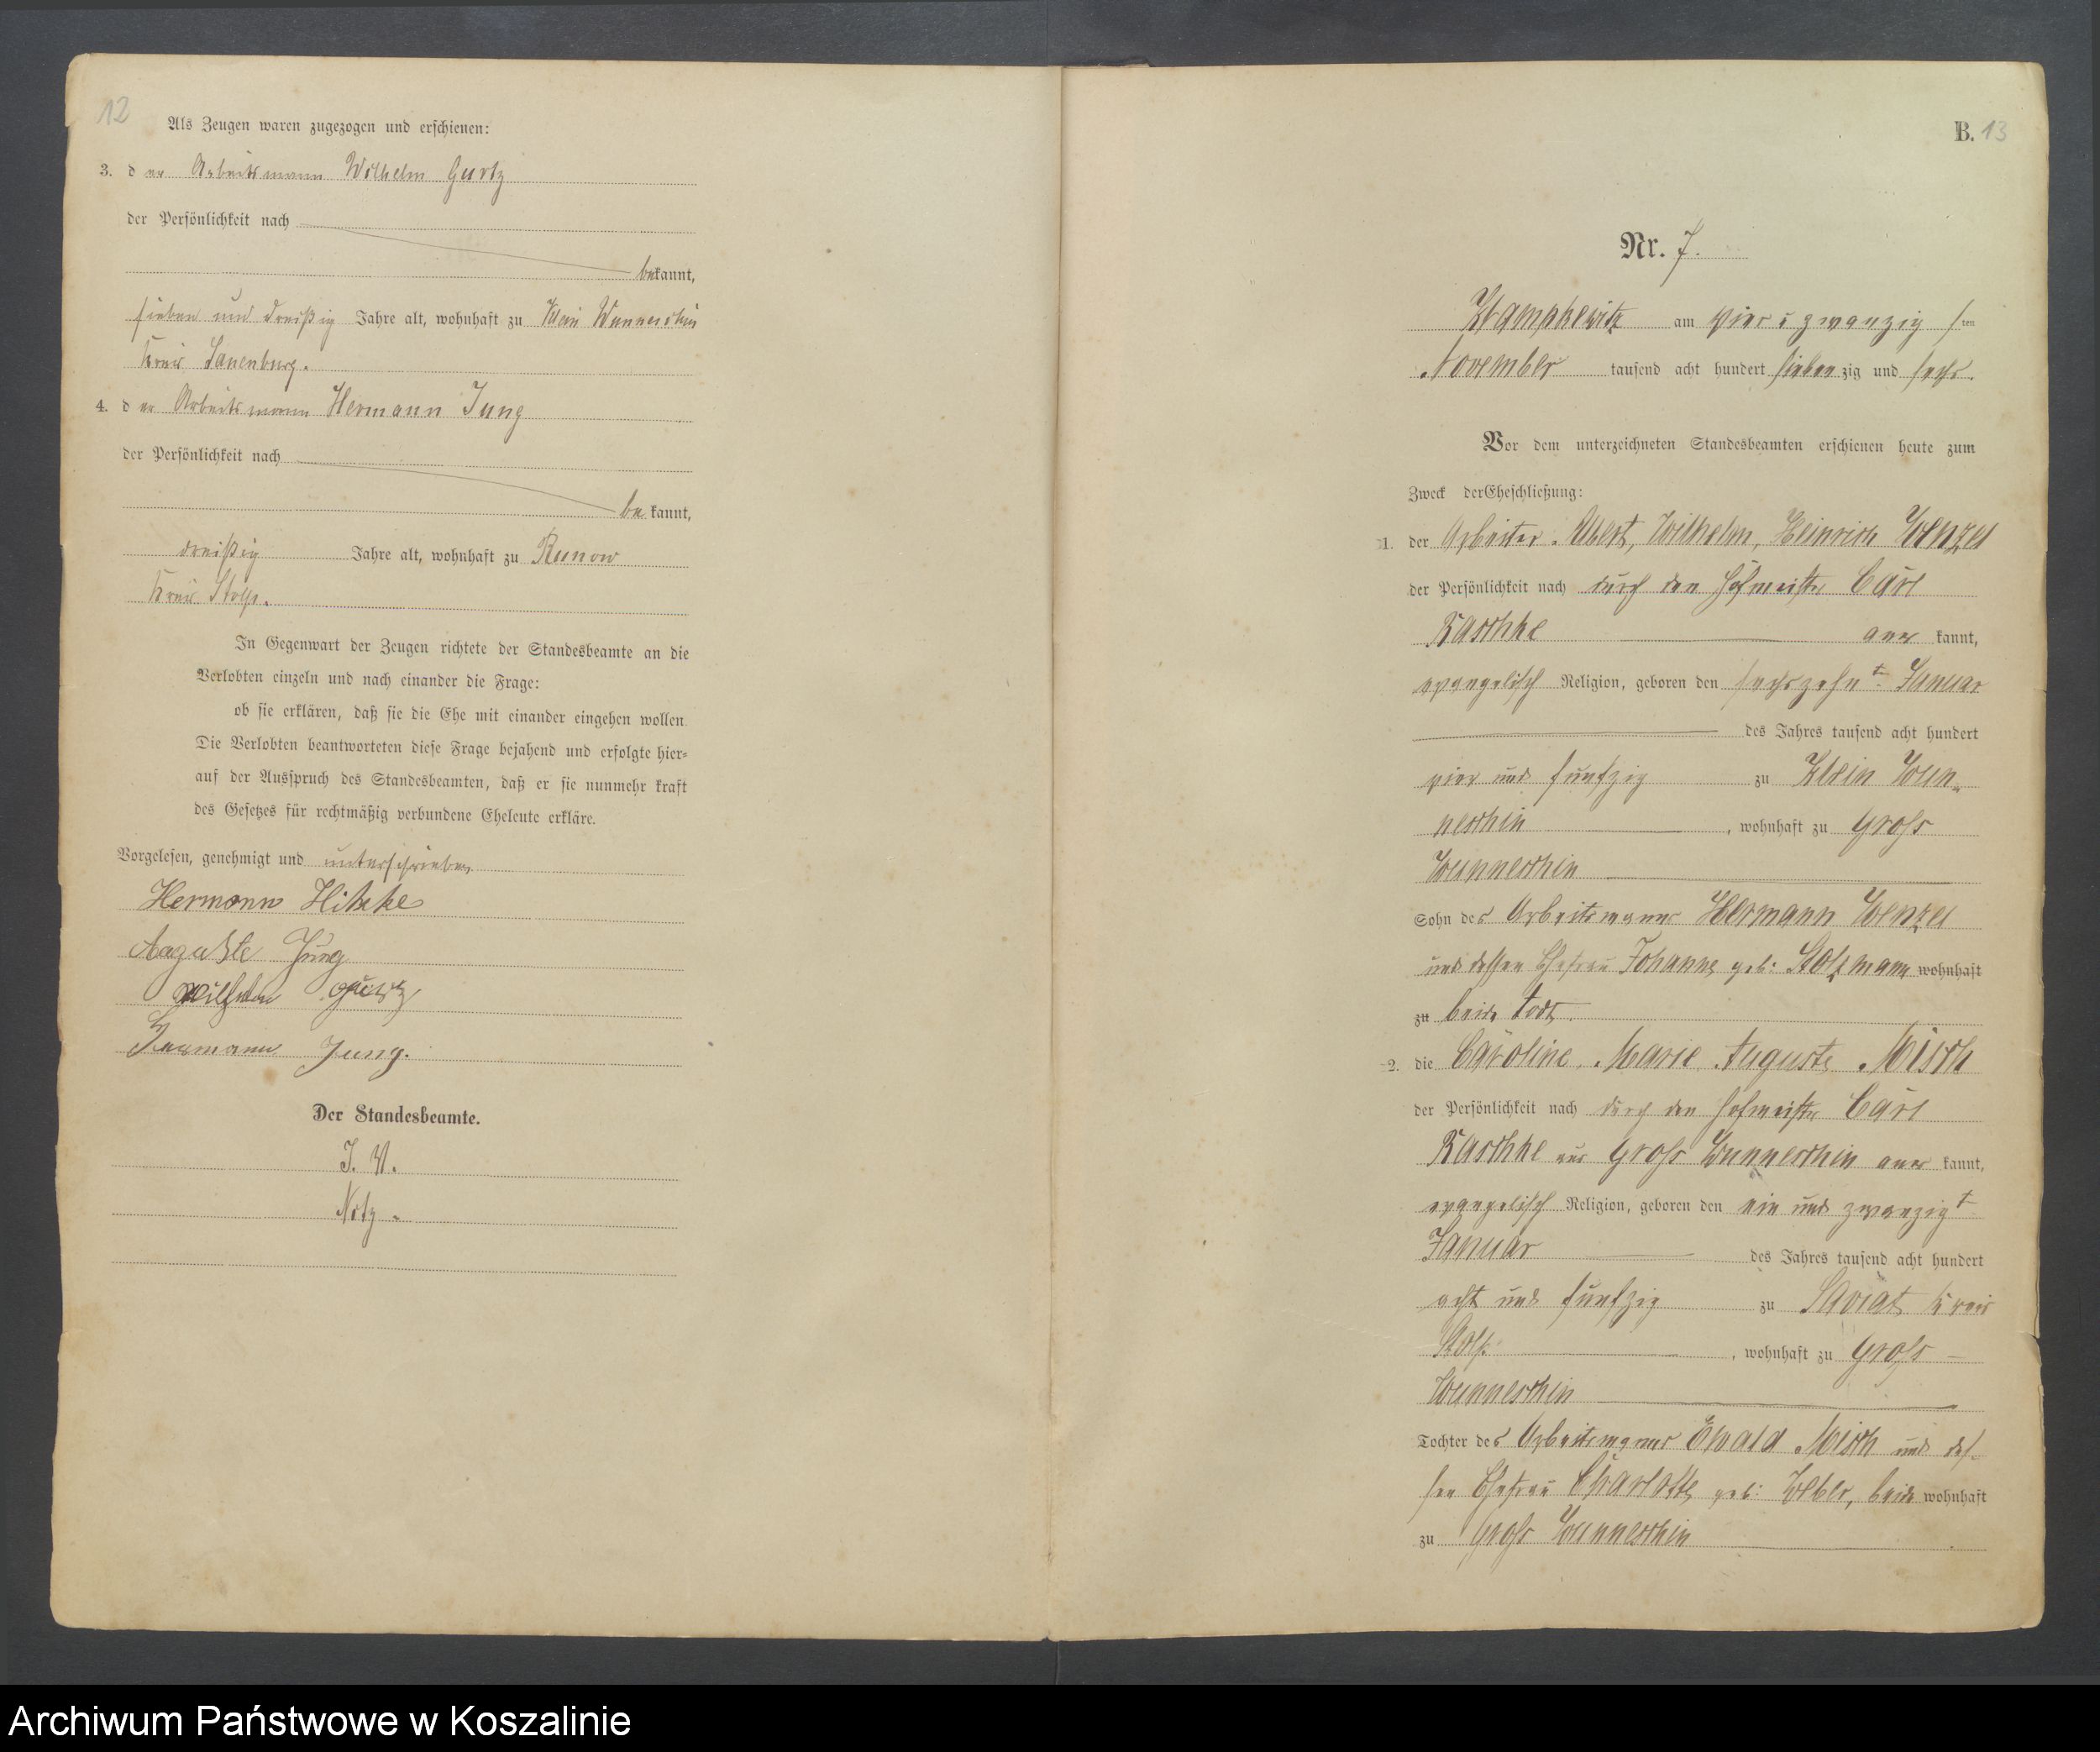 12
Als Zeugen waren zugezogen und erschienen:
3. der Arbeitsmann Wilhelm Gurtz
der Persönlichkeit nach
bekannt,
sieben und dreißig Jahre alt, wohnhaft zu Klein Wunneschin
Kreis Lauenburg.
4. der Arbeitsmann Hermann Jung
der Persönlichkeit nach
bekannt,
dreißig Jahre alt, wohnhaft zu Runow
Kreis Stolp.
In Gegenwart der Zeugen richtete der Standesbeamte an die
Verlobten einzeln und nach einander die Frage:
ob sie erklären, daß sie die Ehe mit einander eingehen wollen.
Die Verlobten beantworteten diese Frage bejahend und erfolgte hier-
auf der Ausspruch des Standesbeamten, daß er sie nunmehr kraft
des Gesetzes für rechtmäßig verbundene Eheleute erkläre.
Vorgelesen, genehmigt und unterschrieben
Hermann
Auguste Jung
Wilhelm Gurtz
Hermann Jung.
Der Standesbeamte.
J. V.
B. 13
Nr. 7.
am vier u zwanzigsten
November tausend acht hundert siebenzig und sechs.
Vor dem unterzeichneten Standesbeamten erschienen heute zum
Zweck der Eheschließung:
1. der Arbeiter Albert, Wilhelm, Heinrich Wenzel
der Persönlichkeit nach durch den Hofmeister Carl
Raschke anerkannt,
evangelisch Religion, geboren den sechszehnt Januar
des Jahres tausend acht hundert
vier und fünfzig zu Klein Wun-
neschin, wohnhaft zu Gross
Wunneschin
Sohn des Arbeitsmanns Hermann Wenzel
und dessen Ehefrau Johanne geb: Stolzmann wohnhaft
zu beide todt.
2. die Caroline Marie Auguste Misch
der Persönlichkeit nach durch den Hofmeister Carl
Raschke aus Gross Wunneschin anerkannt,
evangelisch Religion, geboren den ein und zwanzigt
Januar des Jahres tausend acht hundert
acht und fünfzig zu Saviat Kreis
Stolp, wohnhaft zu Gross
Wunneschin
Tochter des Arbeitsmanns Ewald Misch und des-
sen Ehefrau Charlotte geb: Weber, beide wohnhaft
zu Gross Wunneschin
Archiwum Państwowe w Koszalinie